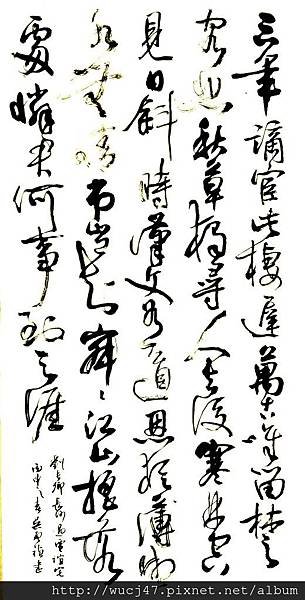 三年謫宦此棲遲萬古惟留楚
客悲秋草獨尋人去後寒林空
見日斜時漢文有道恩猶薄湘
水無情弔豈知寂寂江山搖落
處憐君何事到天涯
劉長卿長沙過賈誼宅
丙申之春吳書
/ http://wucj47.pixnet.net/blog /